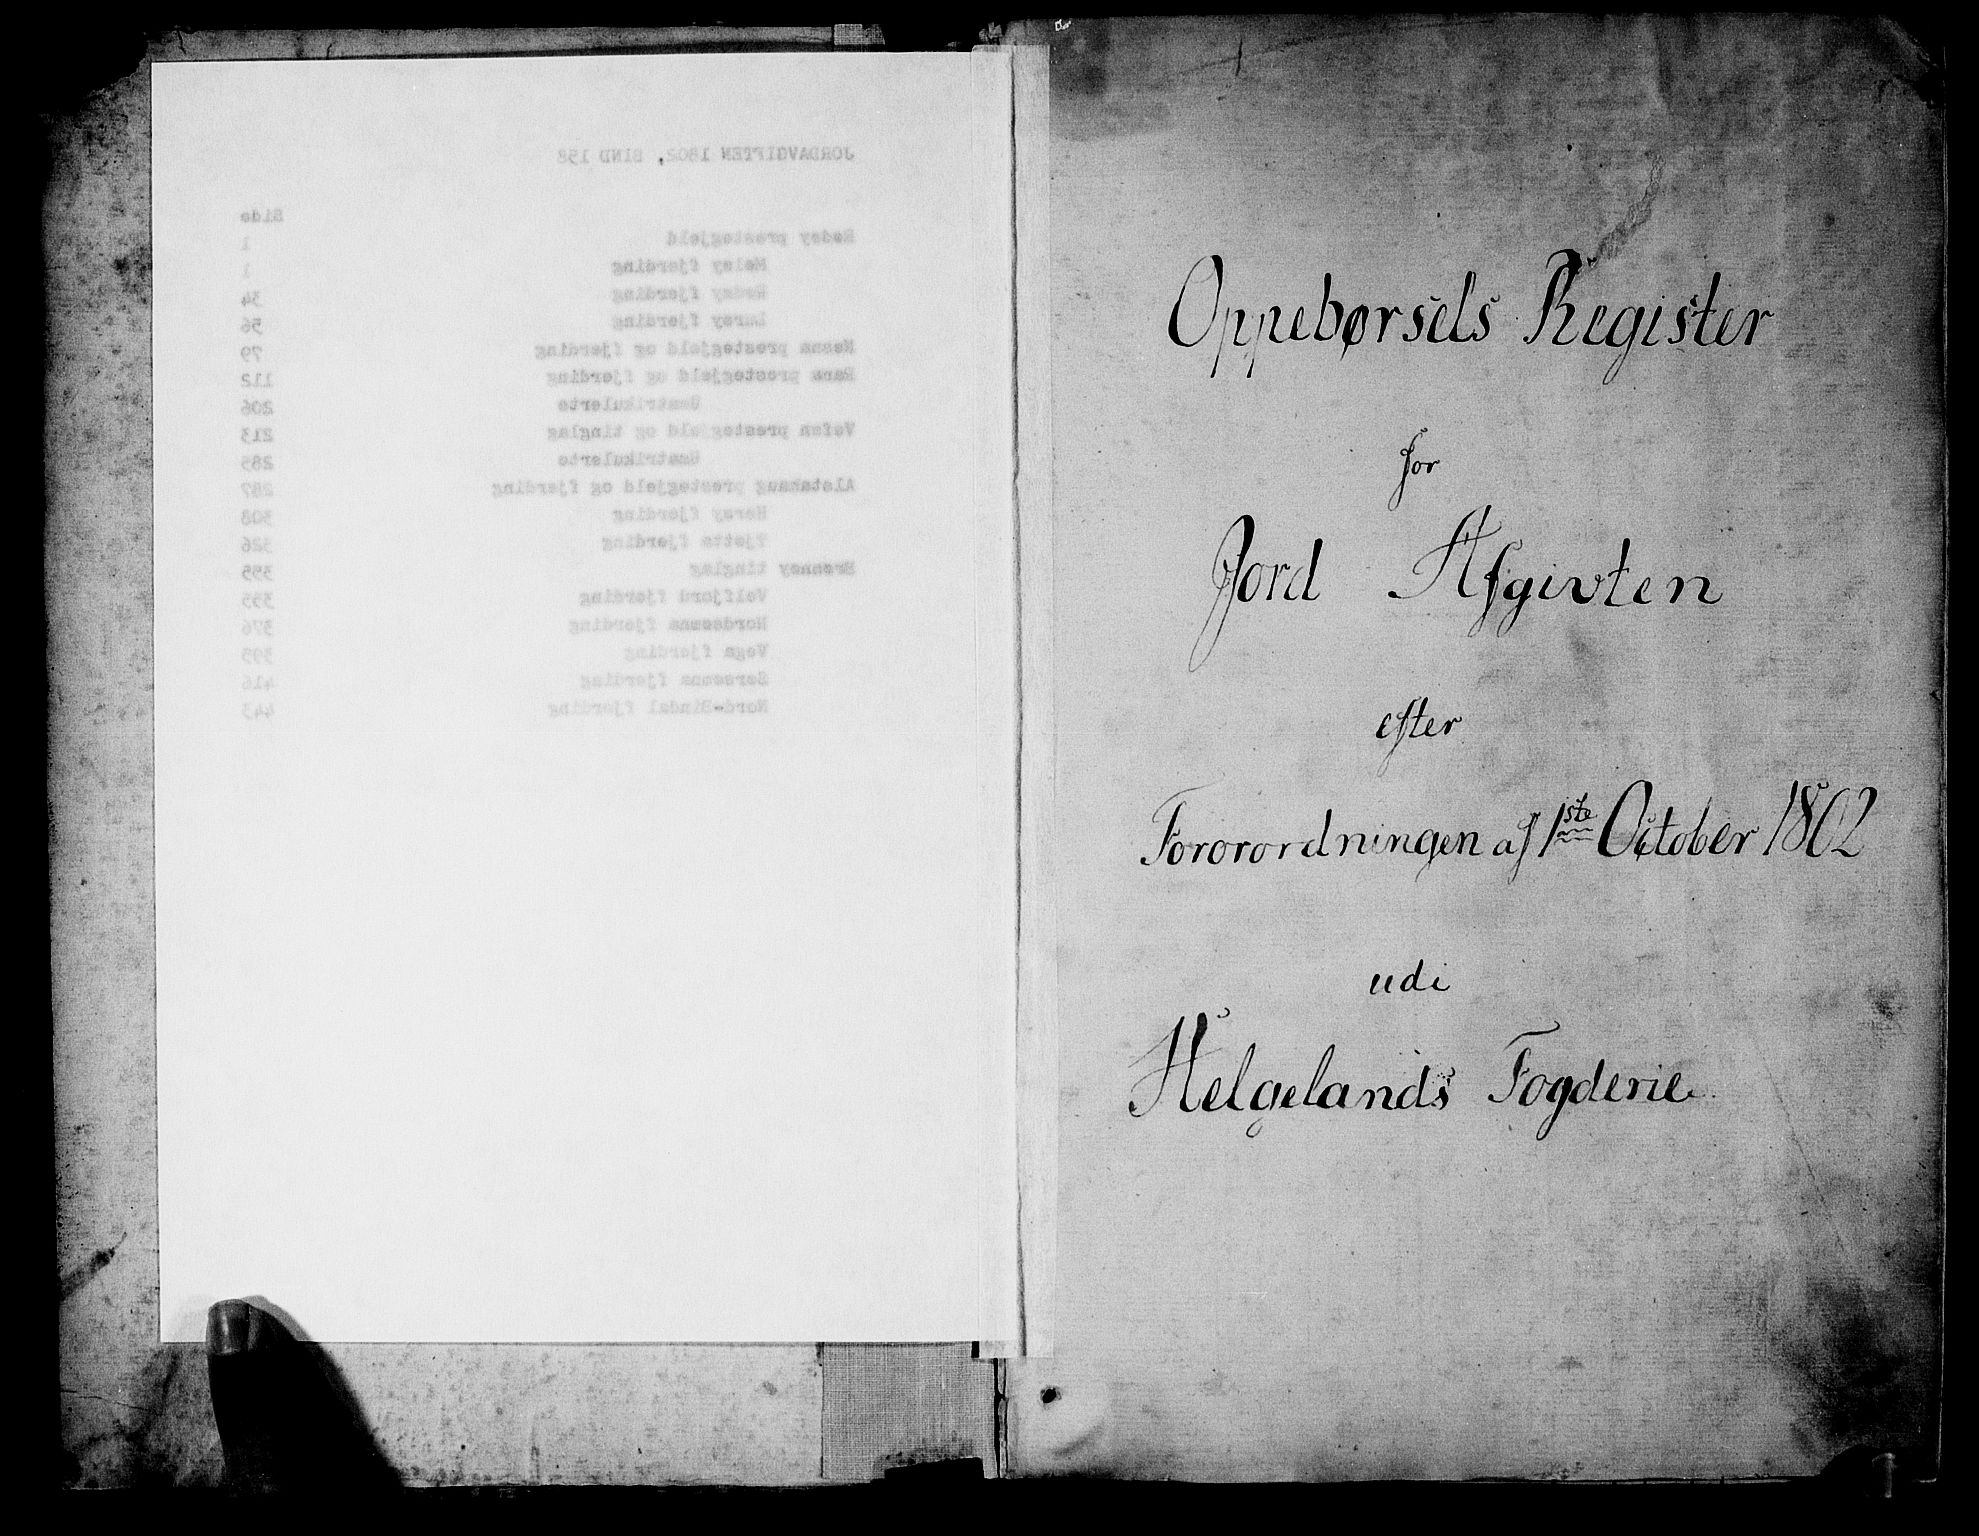 JORDAVGIFTEN 1802, BIND 158
Side
Rødøy prestegjeld 1
Meløy fjerding 1
Rødøy fjerding 34
Lurøy fjerding 56
Nesna prestegjeld og fjerding 79
Rana prestegjeld og fjerding 112
Umatrikulerte 206
Vefsn prestegjeld og tinglag 213
Umatrikulerte 285
Alstahaug prestegjeld og fjerding 287
Herøy fjerding 308
Tjøtta fjerding 326
Brønnøy tinglag 355
Velfjord fjerding 355
Nordsømna fjerding 376
Vega fjerding 395
Sørsømna fjerding 416
Nord-Bindal fjerding 443
Oppebørsels Register
for
Jord Afgivten
efter
Fororordningen af 1ste October 1802
udi
Helgelands Fogderie